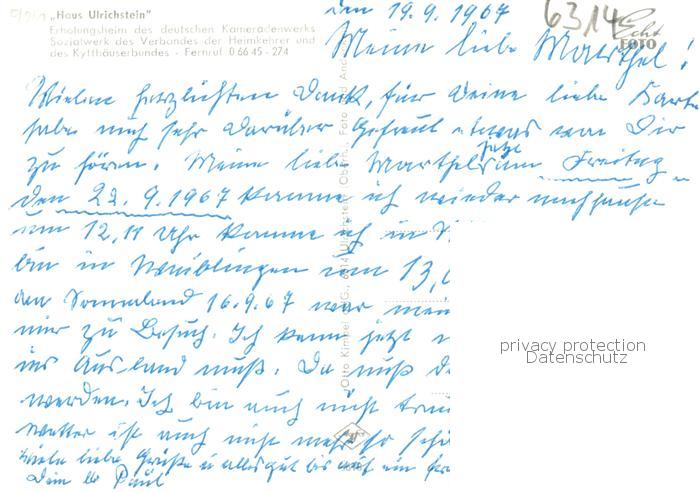 „Haus Ulrichstein"
Erholungsheim des deutschen Kameradenwerks
Sozialwerk des Verbandes der Heimkehrer und
des Kyffhäuserbundes - Fernruf 0 66 45 - 274
den 19.9.1967
6314
Echt
FOTO
Meine liebe Marthel!
Vielen herzlichsten Dank, für Deine liebe Karte
habe mich sehr darüber gefreut etwas von Dir
zu hören. Meine liebe Marthel jetzt am Freitag
den 22.9.1967 komme ich wieder nachhause
um 12,11 Uhr komme ich in
bin in Waiblingen um 13,
den Sonnabend 16.9.67 war mein
mir zu Besuch. Ich kenne jetzt
ins Ausland muß. Da muß
werden. Ich bin auch nicht
wetter ist auch nicht mehr so
Viele liebe Grüße u alles gut bis auf ein
Dein Paul
privacy protection
Datenschutz